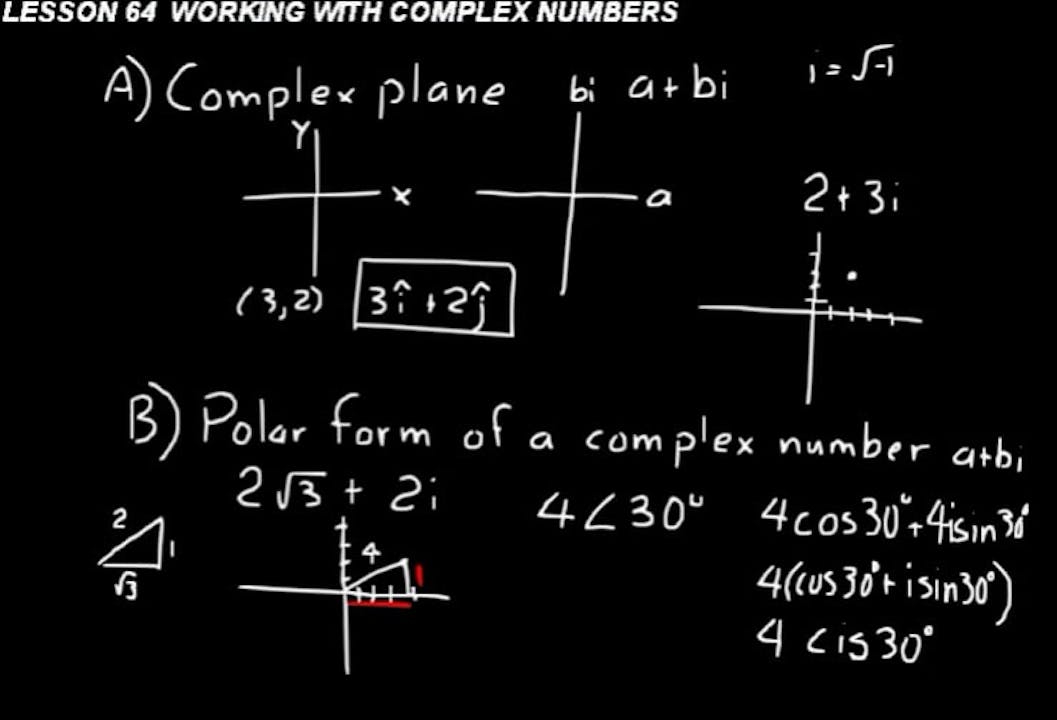 LESSON 64 WORKING WITH COMPLEX NUMBERS
A) Complex plane bi a+bi i = √-1
Y
x
a
2+3i
(3,2) 3î+2ĵ
B) Polar form of a complex number a+bi
2√3 + 2i 4∠30° 4cos30°+4isin30°
2
1
√3
4
4(cos30°+isin30°)
4 cis30°